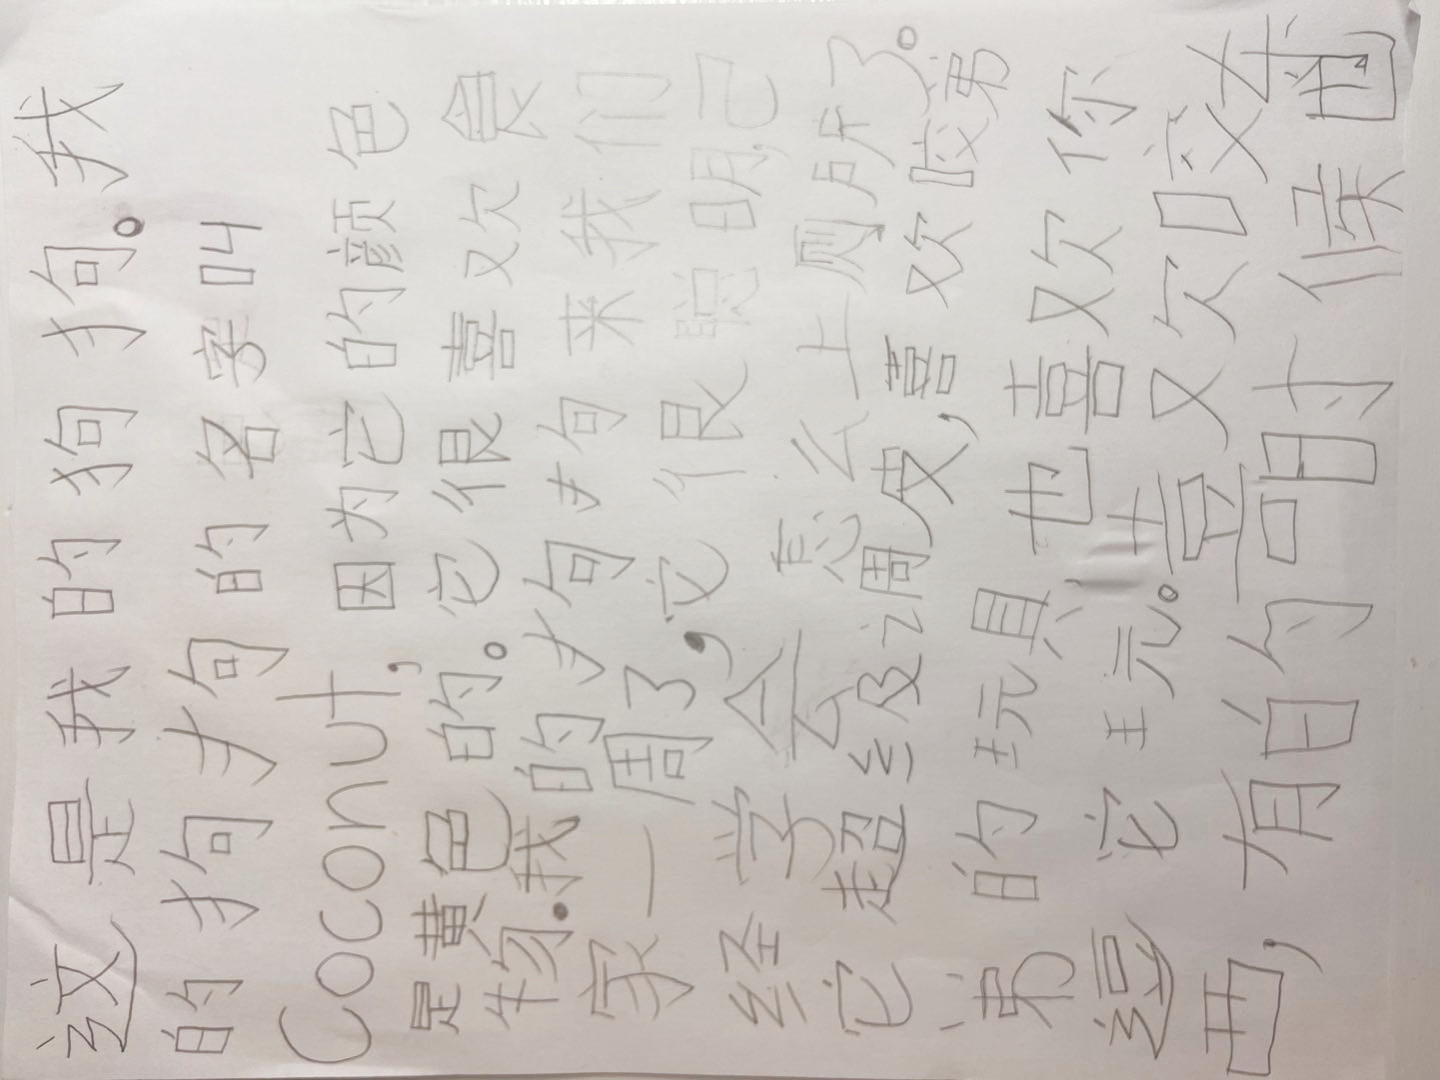 这是我的狗狗。我
的狗狗的名字叫
Coconut,因为它的颜色
是黄色的。它很喜欢食
物.我的狗狗来我们
家一周了,它很聪明,已
经学会怎么上厕所了。
它超级调皮,喜欢咬弟
弟的玩具,也喜欢你
它玩。喜欢咬东
西,有的时候